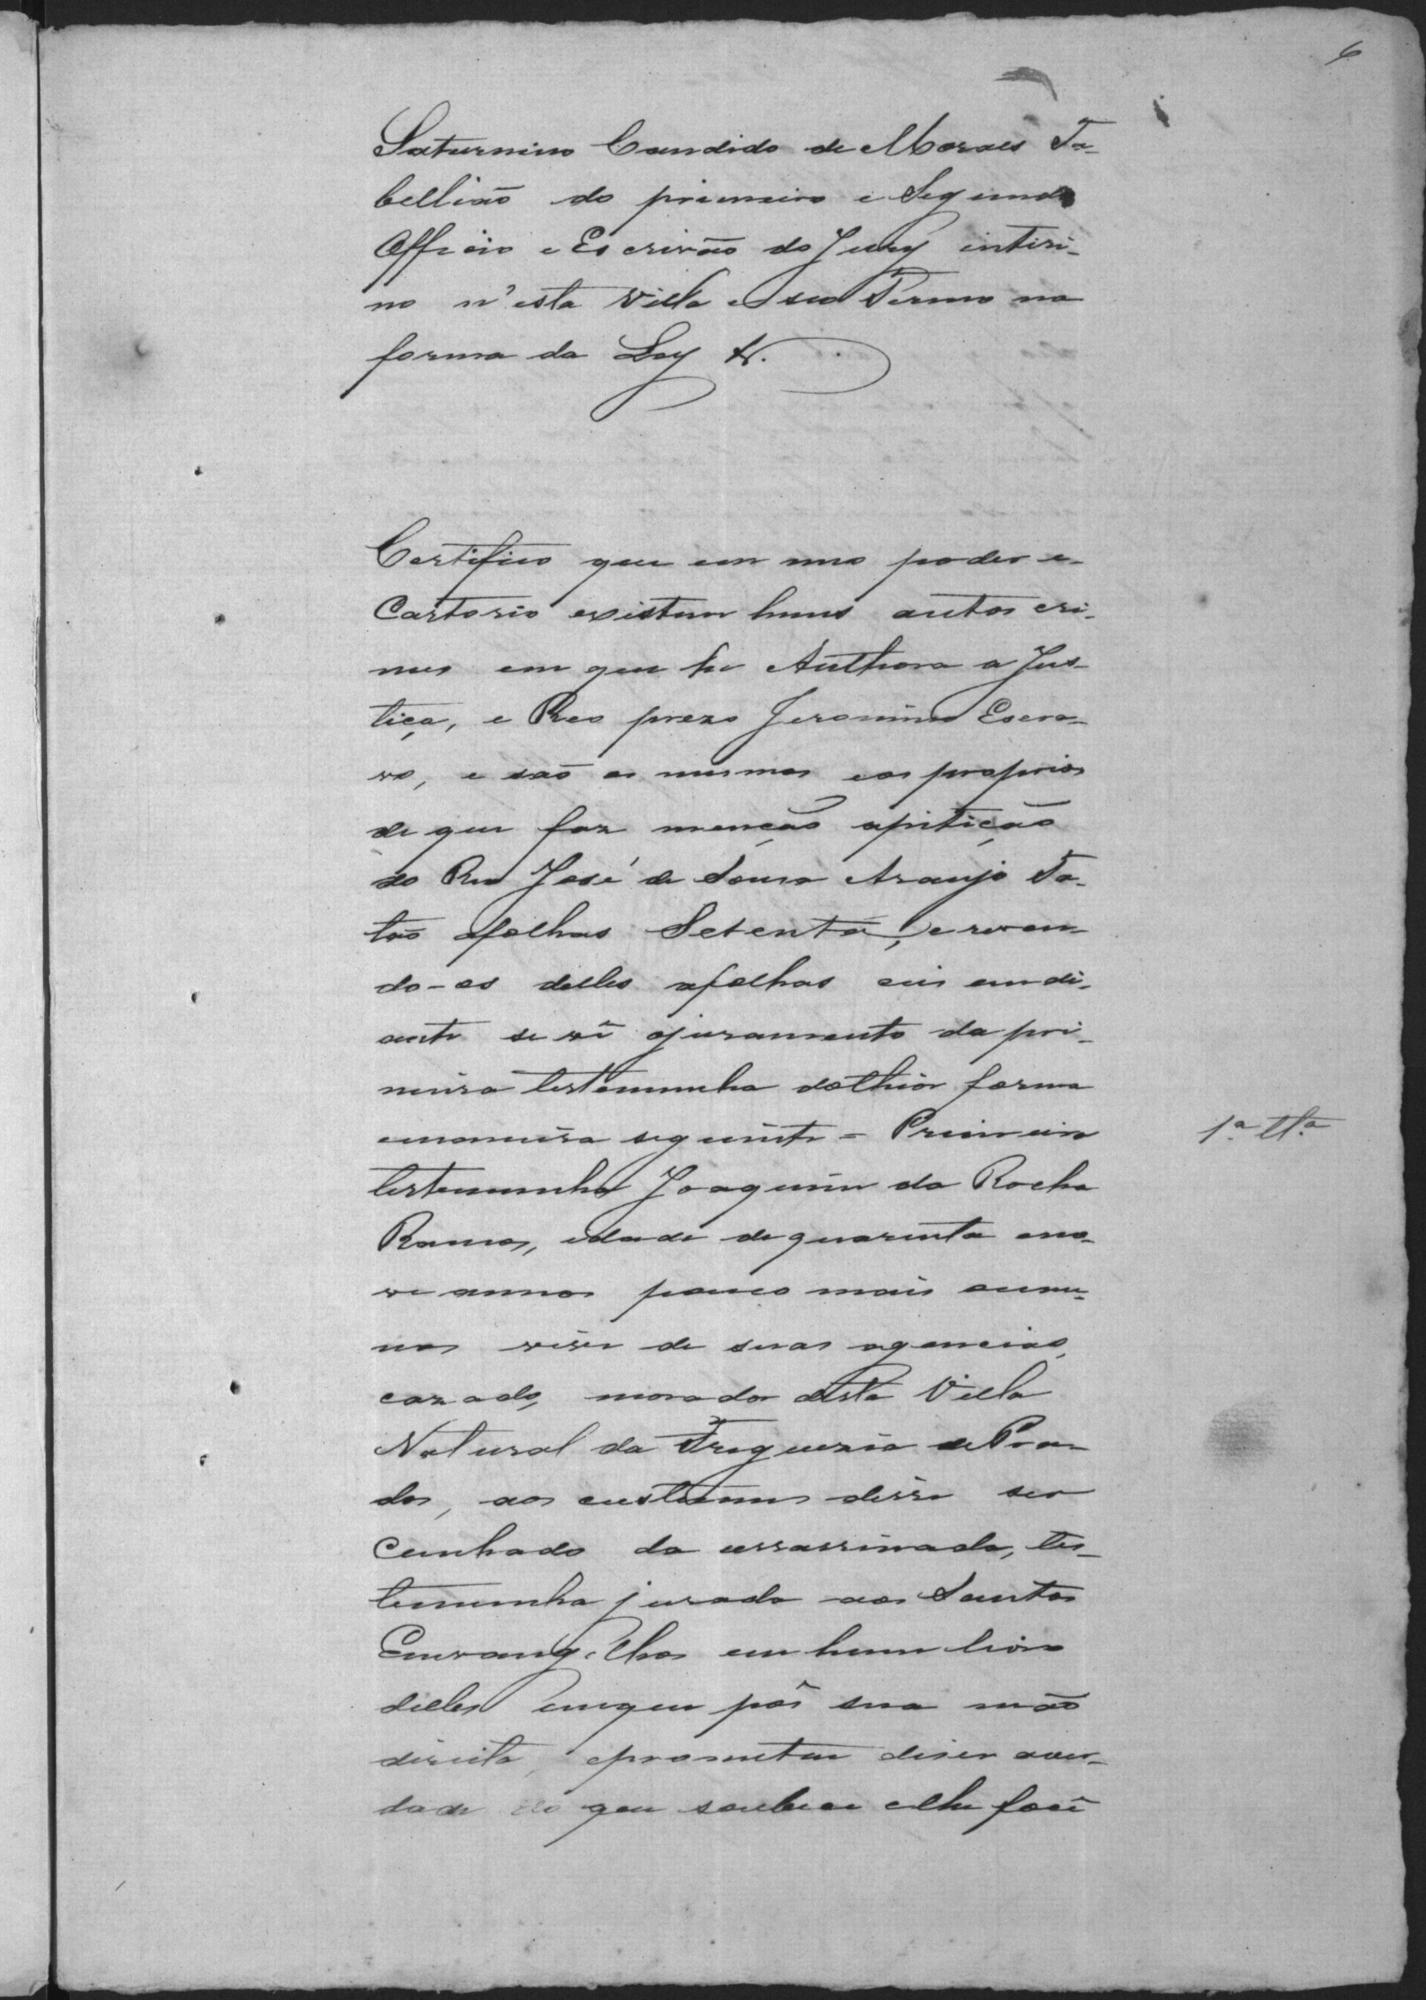 6
Saturnino Candido de Moraes Ta-
bellião do primeiro e Segundo
Officio e Escrivão do Jury interi-
no n'esta Villa e seu Termo na
forma da Ley &.
Certifico que em meo poder e
Cartorio existem huns autos cri-
mes em que he Authora a Jus-
tiça, e Reo prezo Jeronimo Escra-
vo, e são os mesmos e os proprios
de que faz menção apitição
do Reo José de Souza Araujo Ta-
tão afolhas Setenta, e reven-
do-os delles afolhas
ante se vê ojuramento da pri-
meira testemunha dothior forma
emaneira seguinte = Primeira
1ª ttª
testemunha Joaquim da Rocha
Ramos, idade de quarenta eno-
ve annos pouco mais oume-
nos viver de suas agencias,
cazado, morador desta Villa
Natural da Freguezia de Pra-
dos, aos custumes disse ser
Cunhado da assassinada, tes-
temunha jurada aos Santos
Euvangelhos em hum livro
delles emque pôs sua mão
direita, eprometeu diser aver-
dade do que soubece elhe foce